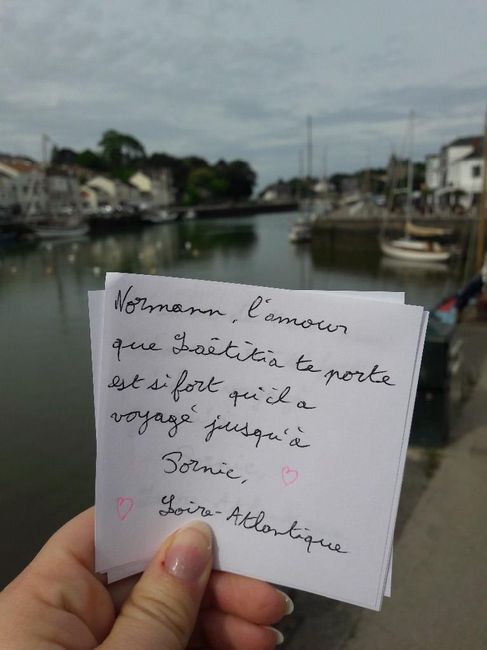 Normann, l'amour
que Laëtitia te porte
est si fort qu'il a
voyagé jusqu'à
Pornic,
Loire-Atlantique